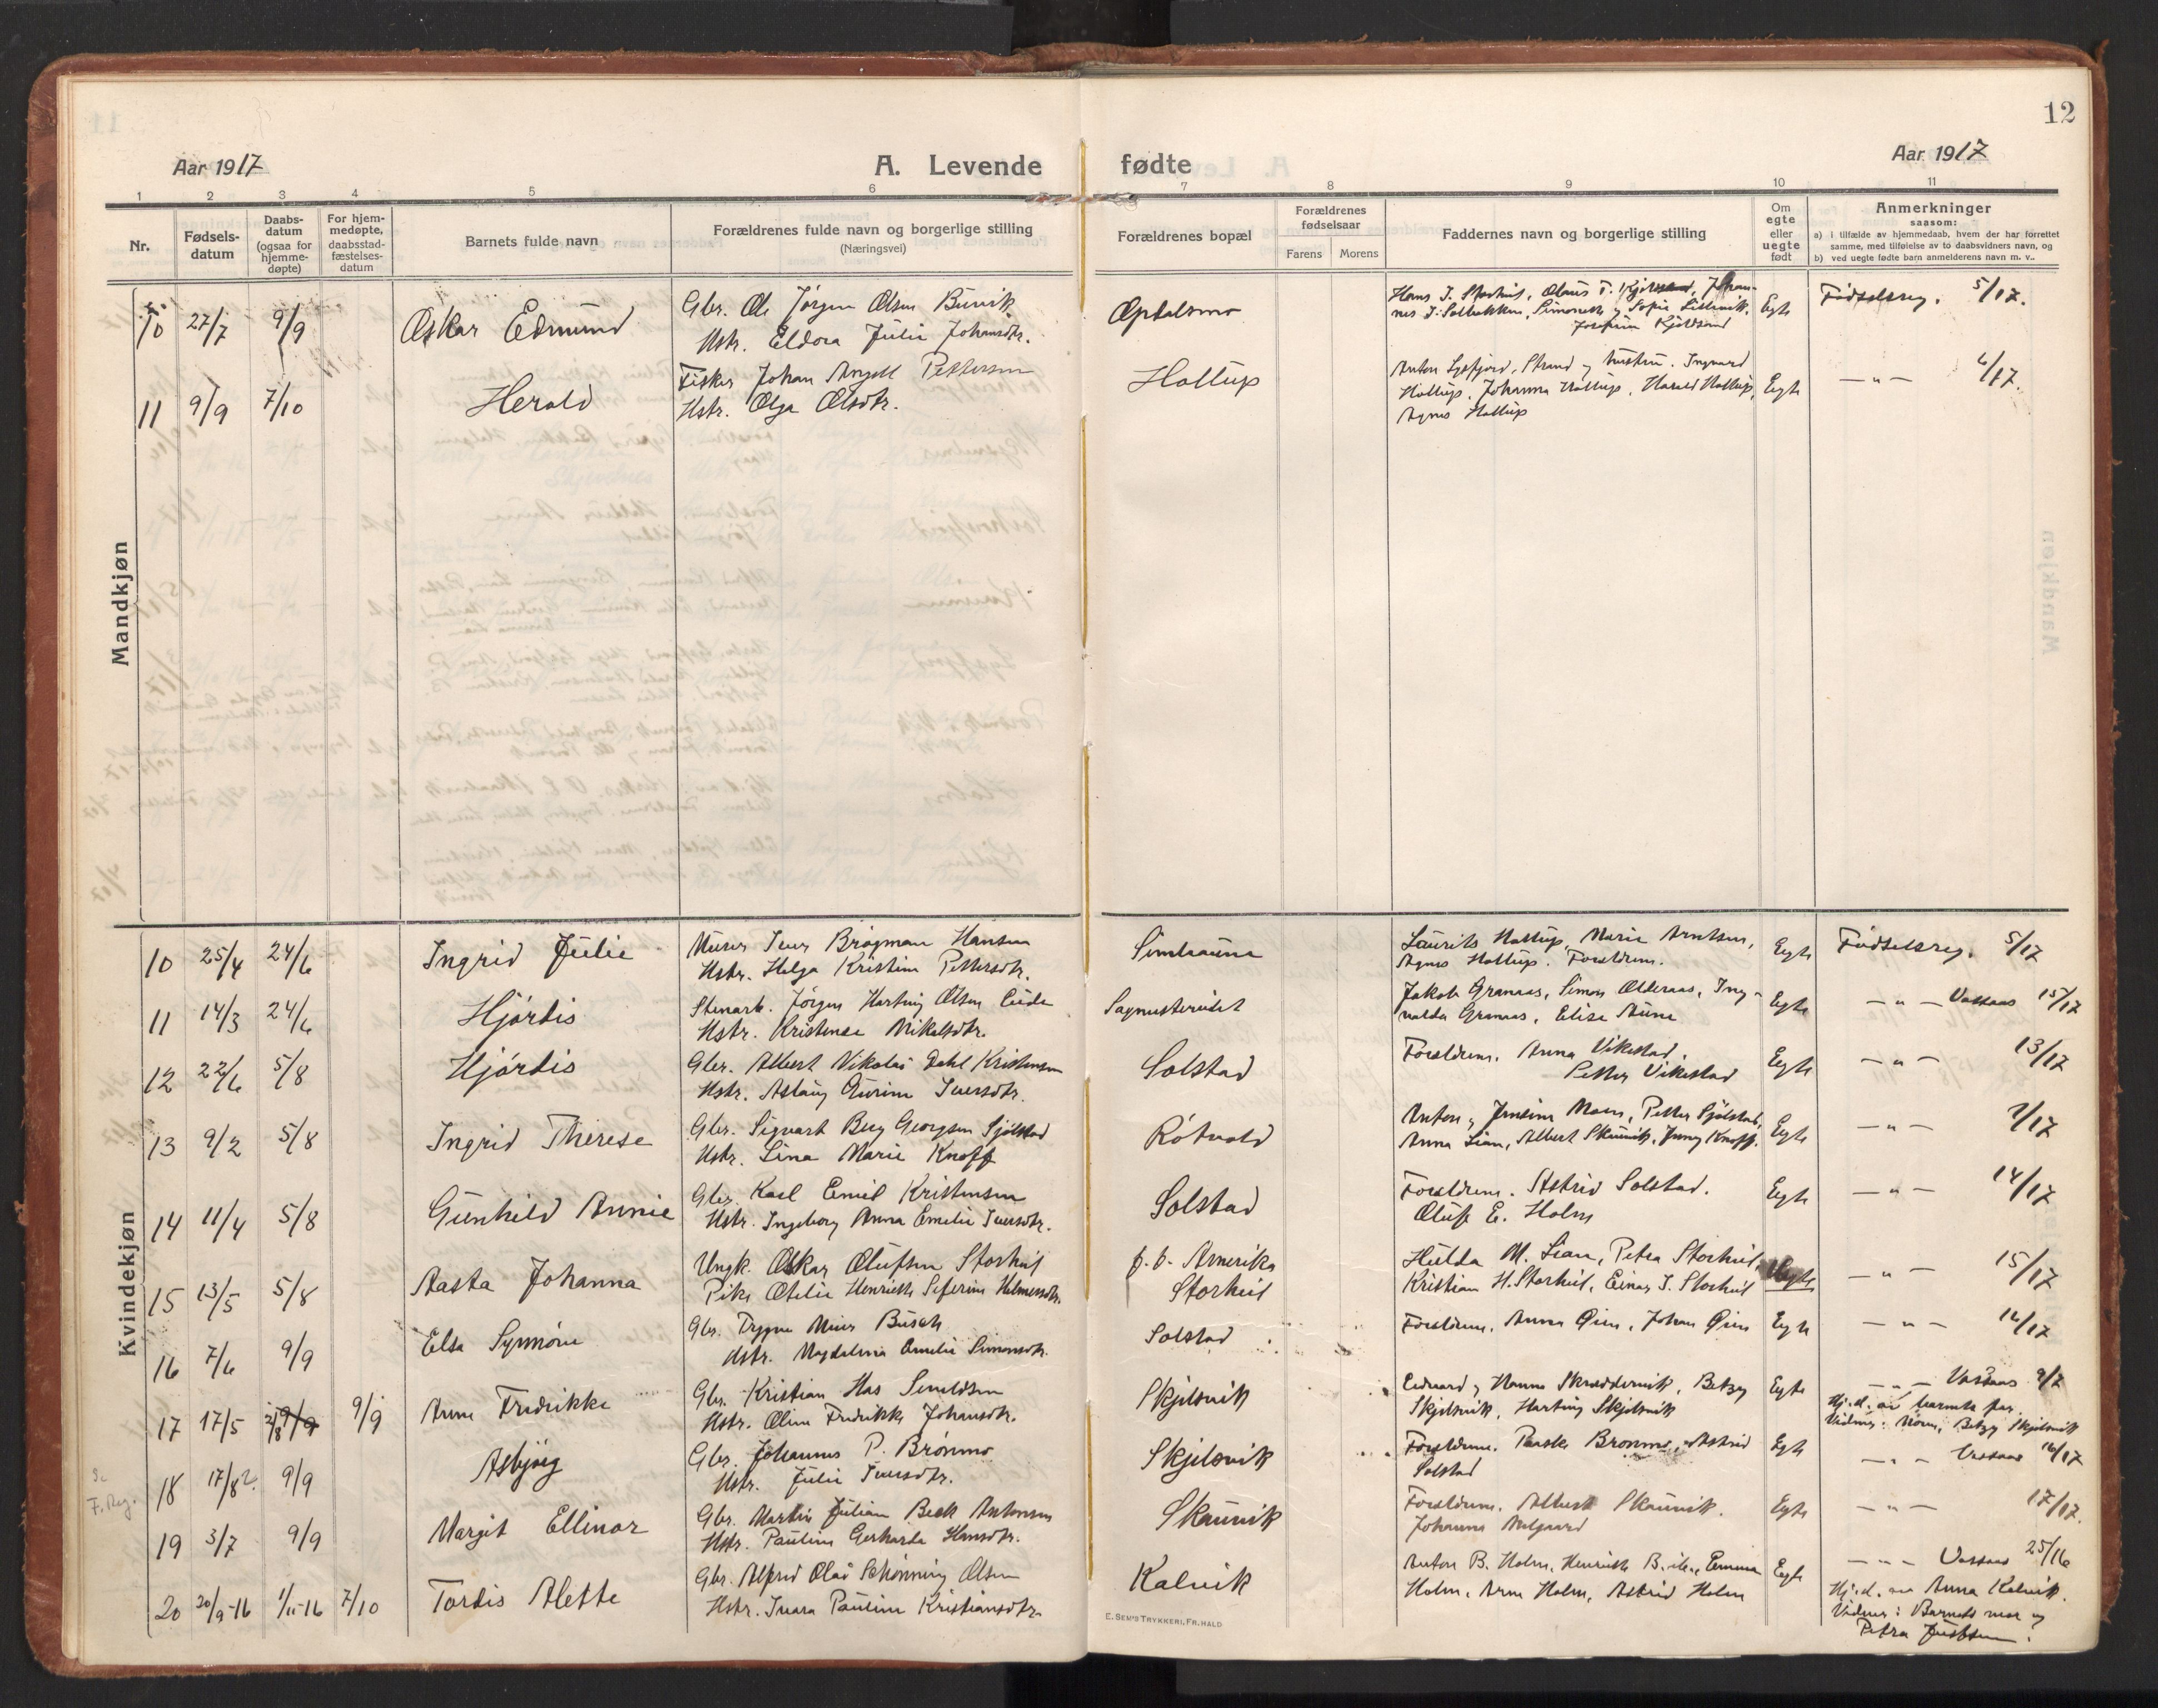 12
Aar 1917 A. Levende fødte Aar 1917
1 2 3 4 5 6 7 8 9 10 11
Nr.
Fødsels-
datum
Daabs-
datum
(ogsaa for
hjemme-
døpte)
For hjem-
medøpte,
daabsstad-
fæstelses-
datum
Barnets fulde navn
Forældrenes fulde navn og borgerlige stilling
(Næringsvei)
Forældrenes bopæl
Forældrenes
fødselsaar
Farens Morens
Faddernes navn og borgerlige stilling
Om
egte
eller
uegte
født
Anmerkninger
saasom:
a) i tilfælde av hjemmedaab, hvem der har forrettet
samme, med tilføielse av to daabsvidners navn, og
b) ved uegte fødte barn anmelderens navn m. v..
Mandkjøn
10 27/7 9/9 Oskar Edmund
Gbr. Ole Jörgen Olsen
Hstr. Eldora Julie Johansdtr.
Opdalsmo
Hans J. Storhul, Olaus T.
nes J. Solbakken, Simonette g Sofie
Kjeldsand
Egte
Födselsreg. 5/17.
11 9/9 7/10 Herald
Fisker Johan Angell Pettersen
Hstr. Olga Olsdtr.
Holtup
Anton Lysfjord, Strand g hustru. Ingvard
Holtup, Johanna Holtup, Harald Holtup,
Agnes Holtup
Egte
— " — 6/17.
Kvindekjøn
10 25/4 24/6 Ingrid Julie
Murer Iver Brögman Hansen
Hstr. Helga Kristine Pettersdtr.
Simlaauna
Laurits Holtup, Marie Arntsen,
Agnes Holtup. Foreldrene.
Egte
Födselsreg. 5/17
11 14/3 24/6 Hjördis
Stenarb. Jörgen Harting Olsen
Hstr. Kristense Mikalsdtr.
Jakob Granaas, Simon Olderaas, Ing-
valda Granaas, Elise Aune
Egte
— " — Vassaas 15/17
12 22/6 5/8 Hjördis
Gbr. Albert Nikolai Dahl Kristensen
Hstr. Aslaug Gurine Iversdtr.
Solstad
Foreldrene. Anna Vikestad.
Petter Vikestad
Egte
— " — 13/17
13 9/2 5/8 Ingrid Therese
Gbr. Sigvart Berg Georgsen Sjölstad
Hstr. Lina Marie Knoff
Rötvold
Anton g Jensine Moen, Petter Sjölstad,
Anna Lian, Albert Skaunvik, Jenny Knoff.
Egte
— " — 2/17
14 11/4 5/8 Gunhild Annie
Gbr. Karl Emil Kristensen
Hstr. Ingeborg Anna Emelie Iversdtr.
Solstad
Foreldrene. Astrid Solstad.
Oluf E. Holm
Egte
— " — 14/17
15 13/5 5/8 Aasta Johanna
Ungk. Oskar Olufsen Storhul
Pike Otelie Henriette Seferine Helmersdtr.
f. t. Amerika
Storhul
Hulda M. Lian, Petra Storhul,
Kristian H. Storhul, Einar J. Storhul
Uegte
— " — 15/17
16 7/6 9/9 Elsa Synnöve
Gbr. Trygve Meier Busch
Hstr. Magdalena Emelie Simonsdtr.
Solstad
Foreldrene. Anna Qien, Johan Qien
Egte
— " — 16/17
17 17/5 9/9 Anne Fredrikke
Gbr. Kristian Has
Hstr. Oline Fredrikke Johansdtr.
Skjelsvik
Edvard g Hanna Skreddervik, Betzy
Skjelsvik, Harting Skjelsvik
Egte
— " — Vassaas 9/7
Hj.d. av barnets far.
Vidner: Moren, Betzy Skjelsvik
Se
F. Reg.
18 17/8? 9/9 Asbjörg
Gbr. Johannes P. Brönmo
Hstr. Julie Iversdtr.
Skjelsvik
Foreldrene. Brönmo, Astrid
Solstad
Egte
— " — Vassaas 16/17
19 3/7 9/9 Margit Ellinor
Gbr. Martin Julian Beck Antonsen
Hstr. Pauline Gerharda Hansdtr.
Skaunvik
Foreldrene. Albert Skaunvik.
Johanna
Egte
— " — 17/17.
20 20/9-16 1/11-16 7/10 Tordis Alette
Gbr. Alfred Olai Schönning Olsen
Hstr. Ivara Pauline Kristiansdtr.
Kalvik
Anton B. Holm, Henriette Emma
Holm, Arne Holm, Astrid Holm
Egte
— " — Vassaas 25/16
Hj.d. av Anna Kalvik.
Vidner: Barnets mor og
Petra
E. SEM'S TRYKKERI, FR. HALD